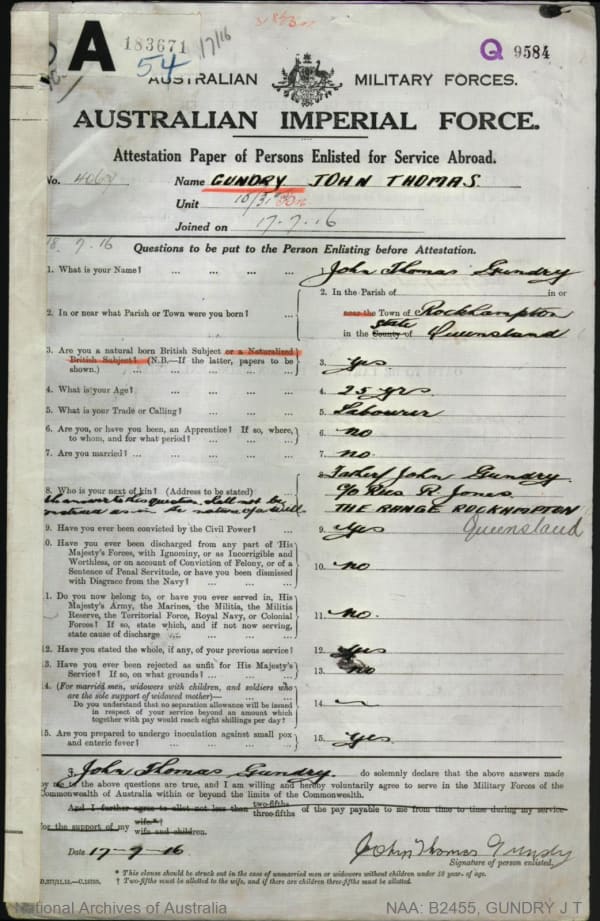 A
183671
17/16
54
Q 9584
AUSTRALIAN MILITARY FORCES.
AUSTRALIAN IMPERIAL FORCE.
Attestation Paper of Persons Enlisted for Service Abroad.
No. Name GUNDRY JOHN THOMAS
Unit 10/31
Joined on 17-7-16
18.7.16 Questions to be put to the Person Enlisting before Attestation.
1. What is your Name? ... ... ... ... John Thomas Gundry
2. In or near what Parish or Town were you born? ... ... 2. In the Parish of in or
near the Town of Rockhampton
in the County of State Queensland
3. Are you a natural born British Subject or a Naturalized
British Subject? (N.B.—If the latter, papers to be
shown.) ... ... ... ... 3. Yes
4. What is your Age? ... ... ... ... 4. 25 yrs.
5. What is your Trade or Calling? ... ... ... 5. Labourer
6. Are you, or have you been, an Apprentice? If so, where,
to whom, and for what period? ... ... ... 6. no
7. Are you married? ... ... ... ... 7. no.
8. Who is your next of kin? (Address to be stated) ... 8. Father John Gundry.
c/o R. Jones.
THE RANGE ROCKHAMPTON
Queensland
the answer to this question shall not be
construed as in the nature of a will
9. Have you ever been convicted by the Civil Power? ... 9. Yes
0. Have you ever been discharged from any part of His
Majesty's Forces, with Ignominy, or as Incorrigible and
Worthless, or on account of Conviction of Felony, or of a
Sentence of Penal Servitude, or have you been dismissed
with Disgrace from the Navy? ... ... ... 10. no
1. Do you now belong to, or have you ever served in, His
Majesty's Army, the Marines, the Militia, the Militia
Reserve, the Territorial Force, Royal Navy, or Colonial
Forces? If so, state which, and if not now serving,
state cause of discharge ... ... ... 11. no.
12. Have you stated the whole, if any, of your previous service? 12. Yes
13. Have you ever been rejected as unfit for His Majesty's
Service? If so, on what grounds? ... ... 13. no
14. (For married men, widowers with children, and soldiers who
are the sole support of widowed mother)—
Do you understand that no separation allowance will be issued
in respect of your service beyond an amount which
together with pay would reach eight shillings per day? 14.
15. Are you prepared to undergo inoculation against small pox
and enteric fever? ... ... ... ... 15. Yes.
John Thomas Gundry. do solemnly declare that the above answers made
by me to the above questions are true, and I am willing and hereby voluntarily agree to serve in the Military Forces of the
Commonwealth of Australia within or beyond the limits of the Commonwealth.
And I further agree to allot not less than two-fifths three-fifths of the pay payable to me from time to time during my service
for the support of my wife* wife and children.
Date 17-7-16 John Thomas Gundry
Signature of person enlisted.
* This clause should be struck out in the case of unmarried men or widowers without children under 18 years of age.
† Two-fifths must be allotted to the wife, and if there are children three-fifths must be allotted.
National Archives of Australia NAA: B2455, GUNDRY J T